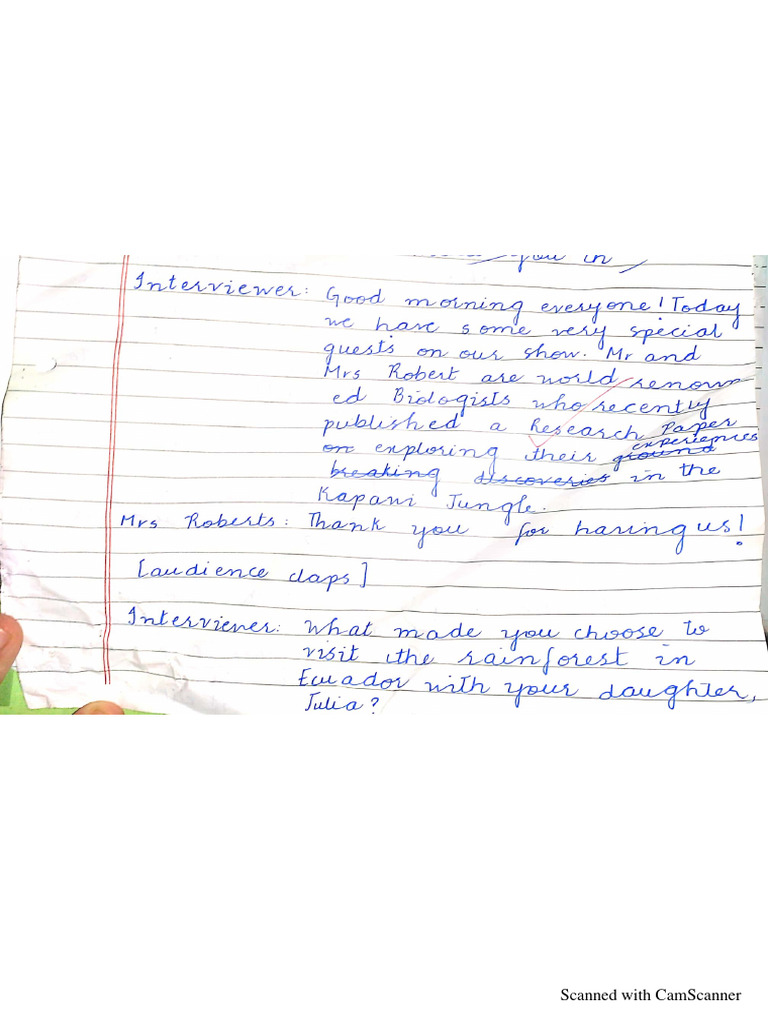 you in
Interviewer: Good morning everyone! Today
we have some very special
guests on our show. Mr and
Mrs Robert are world renown
ed Biologists who recently
published a Research Paper
on exploring their ground experiences
breaking discoveries in the
Kapawi Jungle.
Mrs Roberts: Thank you for having us!
[audience claps]
Interviewer: What made you choose to
visit the rainforest in
Ecuador with your daughter,
Julia?
Scanned with CamScanner